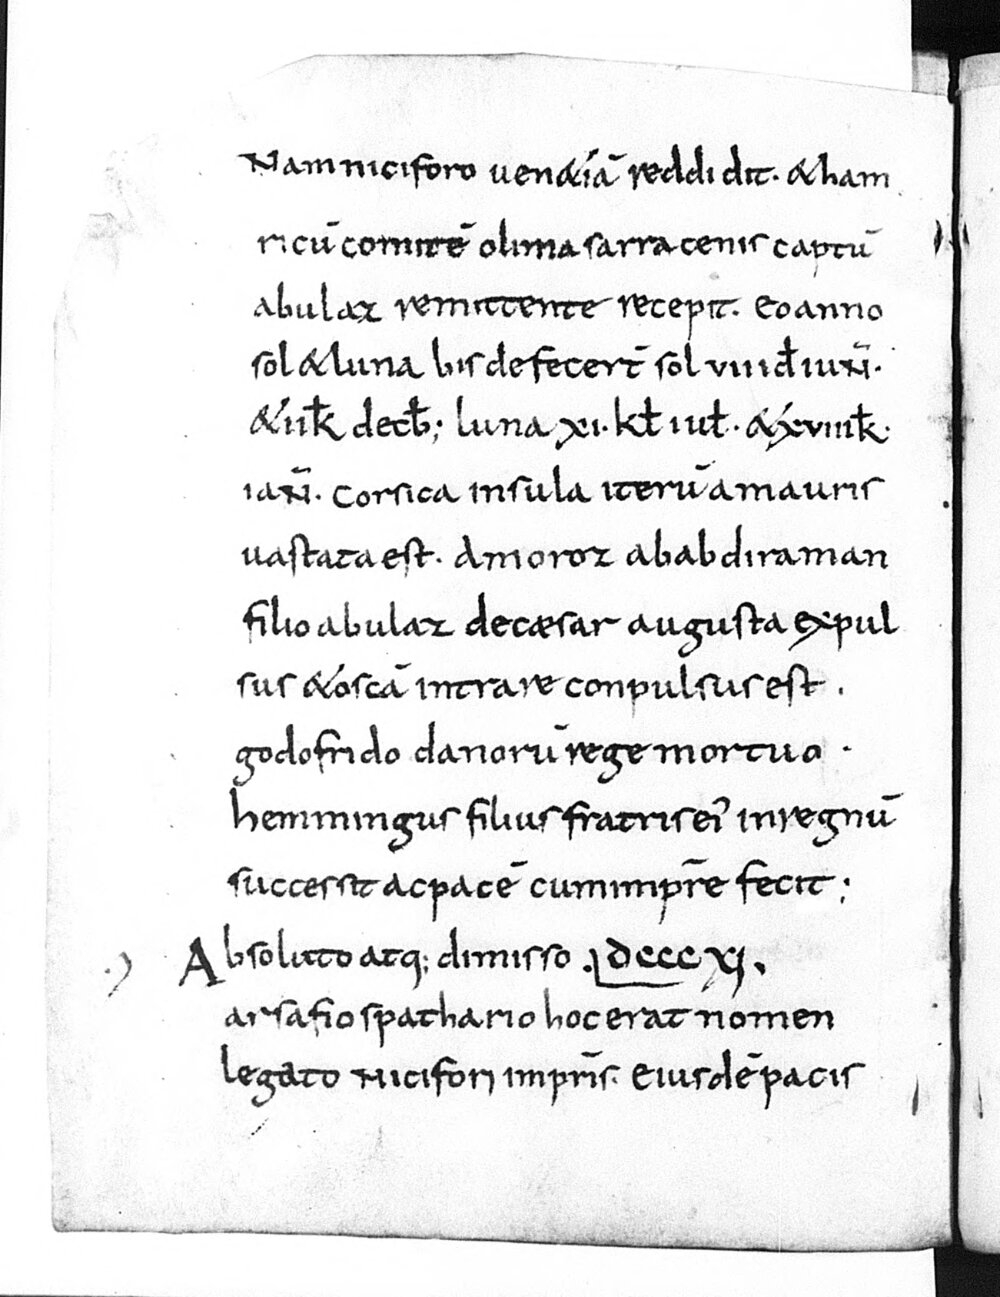 Nam niciforo uen&iā reddidit. & ham
ricū comitē olim a sarracenis captū
abulaz remittente recepit. eo anno
sol & luna bis defecer̄t sol viii id̄ iuN̄.
& ii k̄ decb̄; luna xi. kł iuł. & xviii k̄.
iaN̄. corsica insula iterū a mauris
uastata est. Amoroz ab abdiraman
filio abulaz de cæsaraugusta expul
sus & oscā intrare conpulsus est.
godofrido danorū rege mortuo.
hemmingus filius fratris ei᾽ in regnū
successit ac pacē cum impr̄e fecit;
Absoluto atq; dimisso .dcccxi.
arsafio spathario hoc erat nomen
legato Niciforj impr̄is. eiusdē pacis